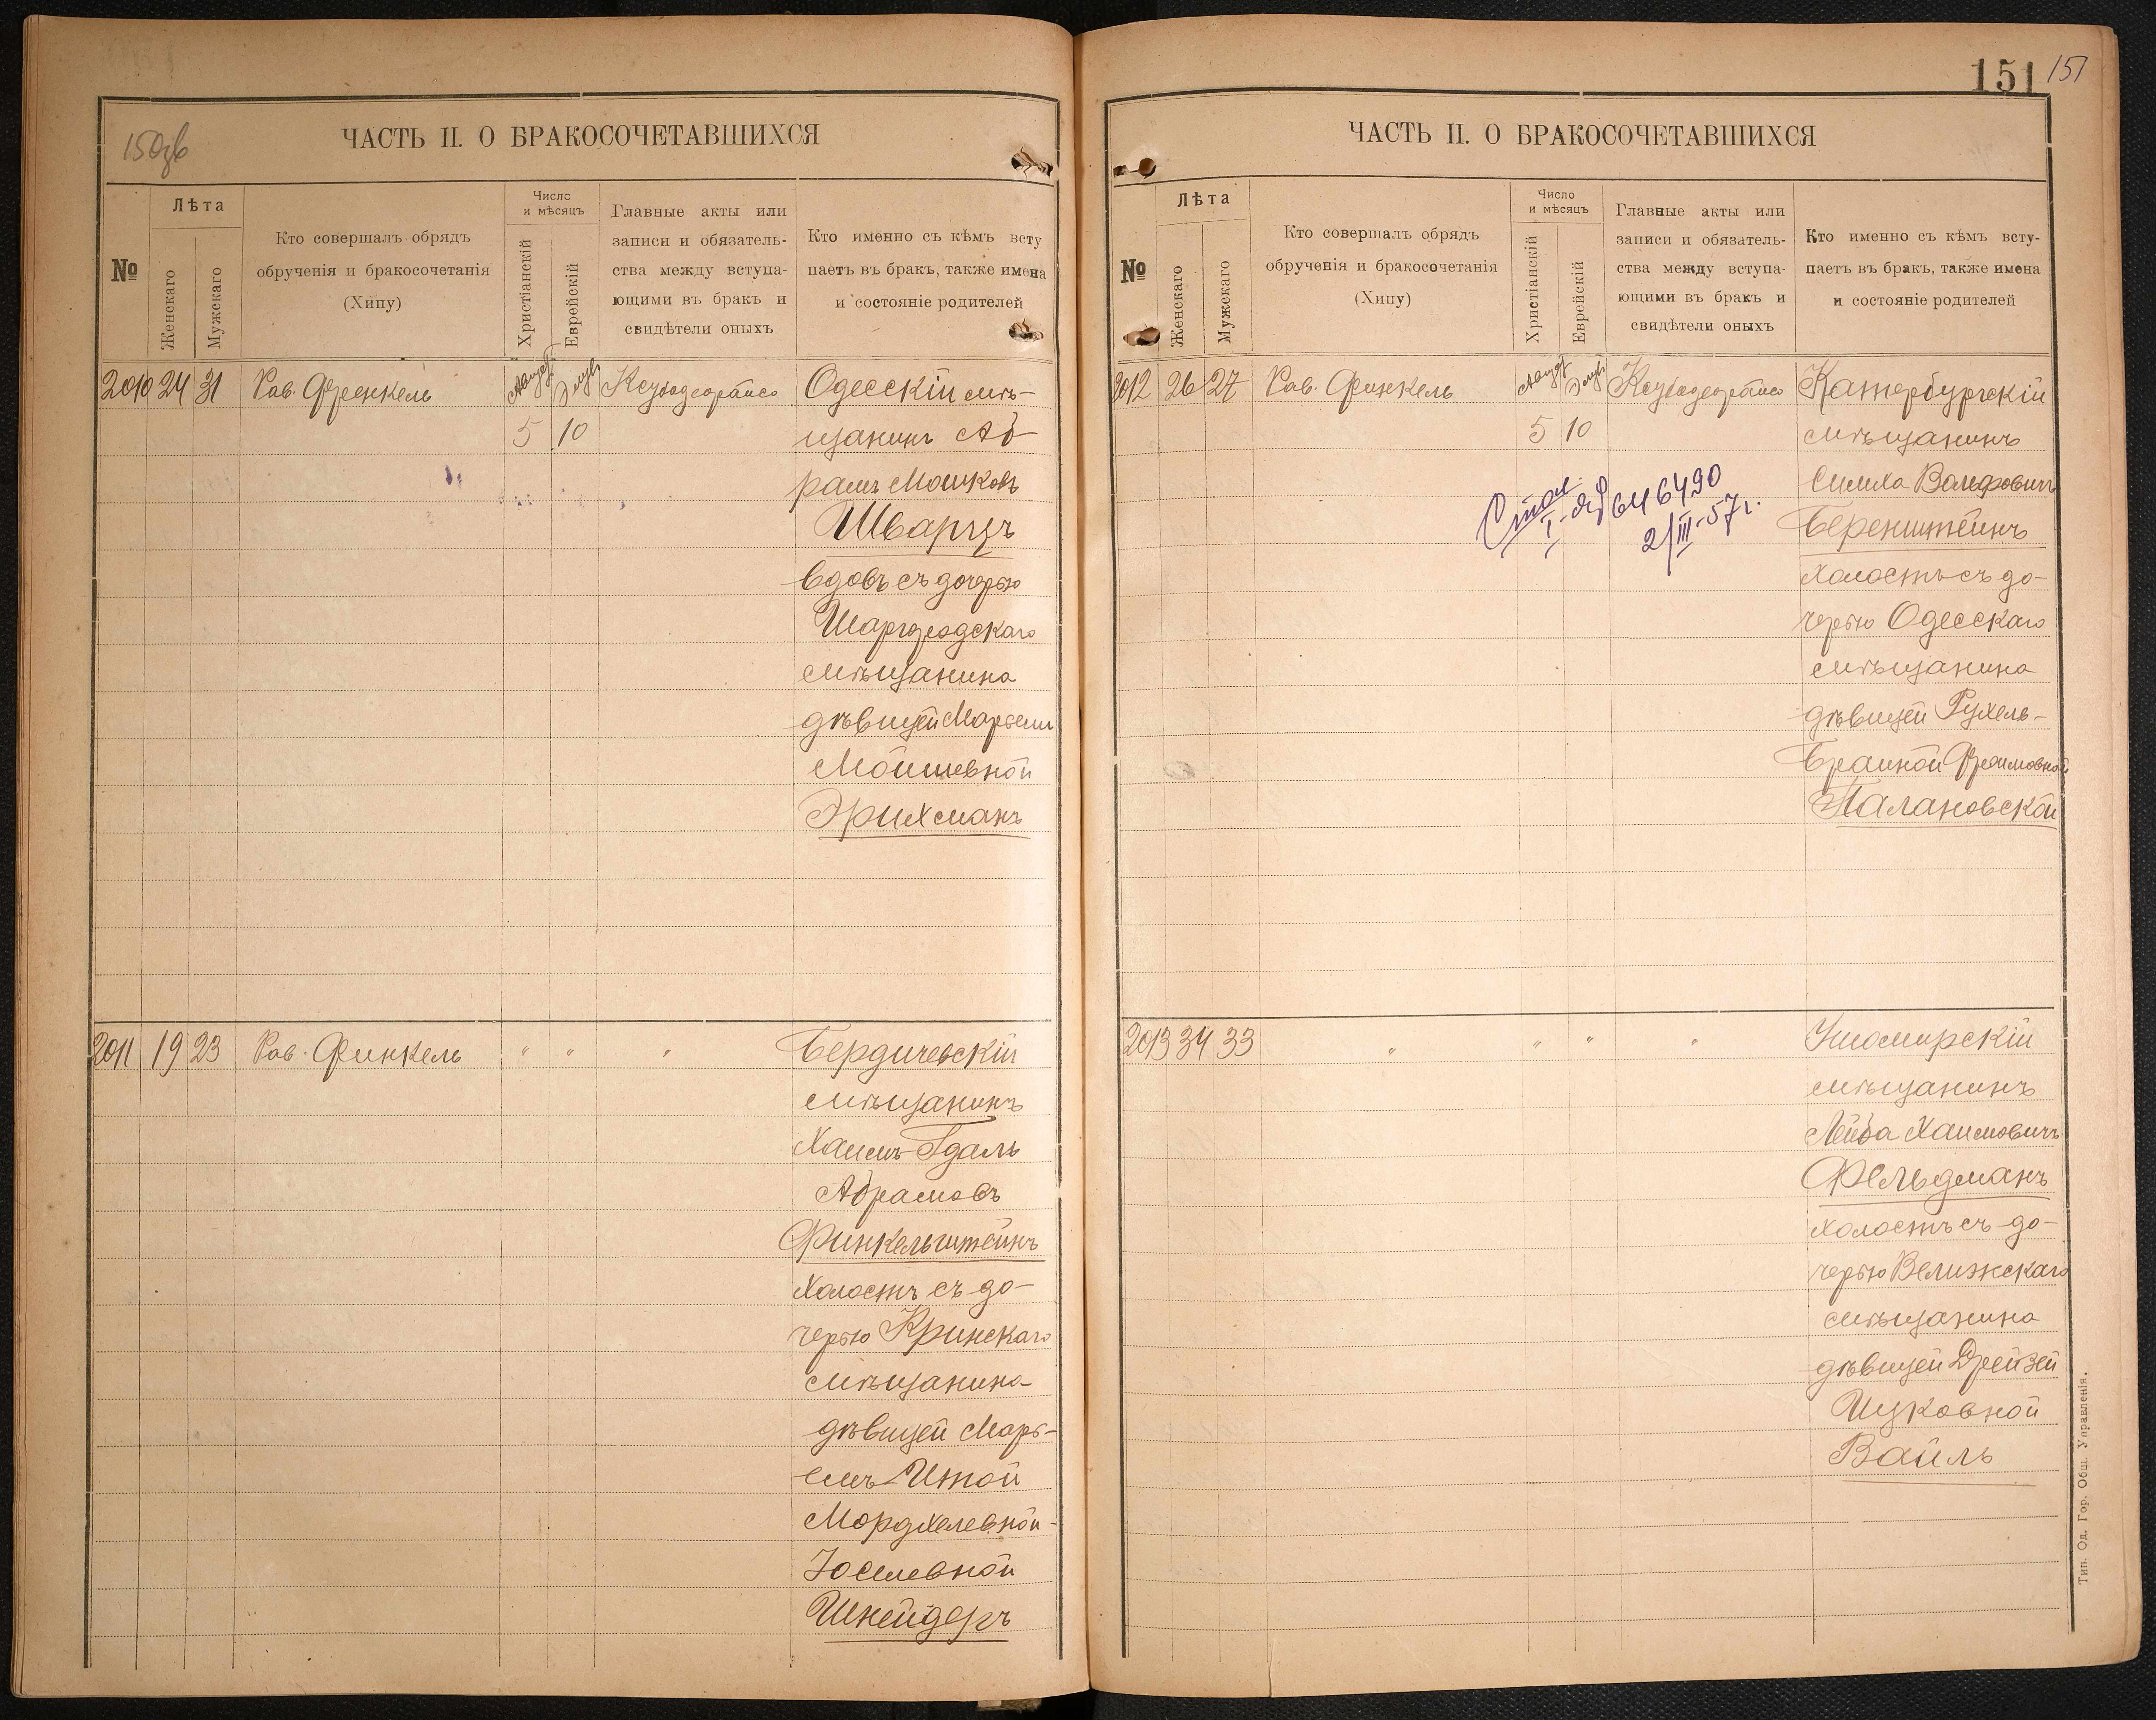 150зв
ЧАСТЬ II. О БРАКОСОЧЕТАВШИХСЯ
№
Лѣта
Женскаго
Мужскаго
Кто совершалъ обрядъ
обрученія и бракосочетанія
(Хипу)
Число
и мѣсяцъ
Христіанскій
Еврейскій
Главные акты или
записи и обязатель-
ства между вступа-
ющими въ бракъ и
свидѣтели оныхъ
Кто именно съ кѣмъ всту
паетъ въ бракъ, также имена
и состояніе родителей
2010 24 31 Рав. Френкель Августъ Элулъ Одесскій мѣ-
5 10 щанинъ Аб-
рамъ Мошковъ
Шварцъ
вдовъ съ дочерью
Шаргородскаго
мѣщанина
дѣвицей Марьемъ
Мошевной
Эрихманъ
2011 19 23 Рав. Финкель " " " Бердичевскій
мѣщанинъ
Хаимъ-Гдаль
Абрамовъ
Финкельштейнъ
холостъ съ до-
черью Кринскаго
мѣщанина
дѣвицей Марь-
емъ-Итой
Мордхелевной-
Юселевной
Шнейдеръ
151 151
ЧАСТЬ II. О БРАКОСОЧЕТАВШИХСЯ
№
Лѣта
Женскаго
Мужскаго
Кто совершалъ обрядъ
обрученія и бракосочетанія
(Хипу)
Число
и мѣсяцъ
Христіанскій
Еврейскій
Главные акты или
записи и обязатель-
ства между вступа-
ющими въ бракъ и
свидѣтели оныхъ
Кто именно съ кѣмъ всту-
паетъ въ бракъ, также имена
и состояніе родителей
2012 26 27 Рав. Финкель Августъ Элулъ Катербургскій
5 10 мѣщанинъ
Симха Вольфовичъ
Беренштейнъ
холостъ съ до-
черью Одесскаго
мѣщанина
дѣвицей Рухель-
Браиной Фроимовной
Палановской
646490
2/III-57г.
2013 34 33 " " " " Ушомирскій
мѣщанинъ
Лейба Хаимовичъ
Фельдманъ
холостъ съ до-
черью Велижскаго
мѣщанина
дѣвицей Дрейзей
Ицковной
Вайль
Тип. Од. Гор. Общ. Управленія.